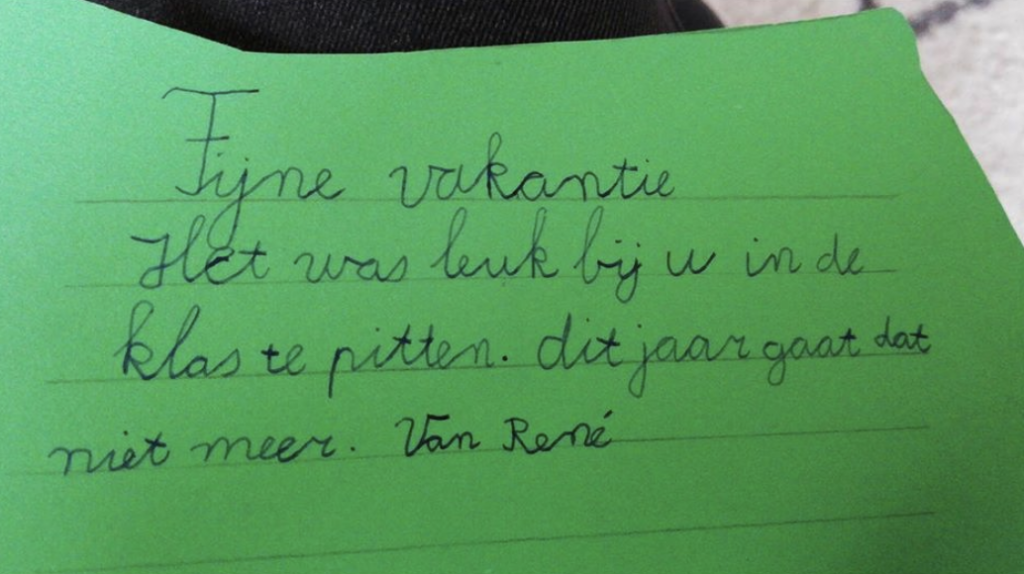 Fijne vakantie
Het was leuk bij u in de
klas te pitten. dit jaar gaat dat
niet meer. Van René